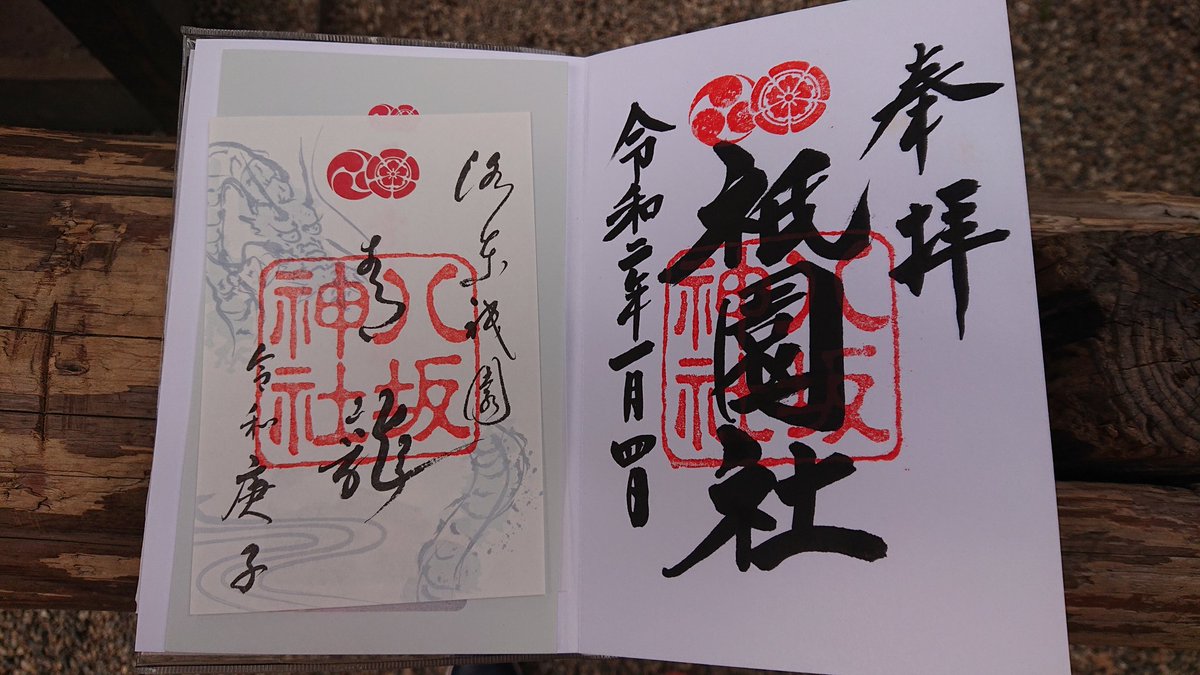 奉拝
祇園社
八坂神社
令和二年一月四日
洛東祇園
青龍
八坂神社
令和庚子